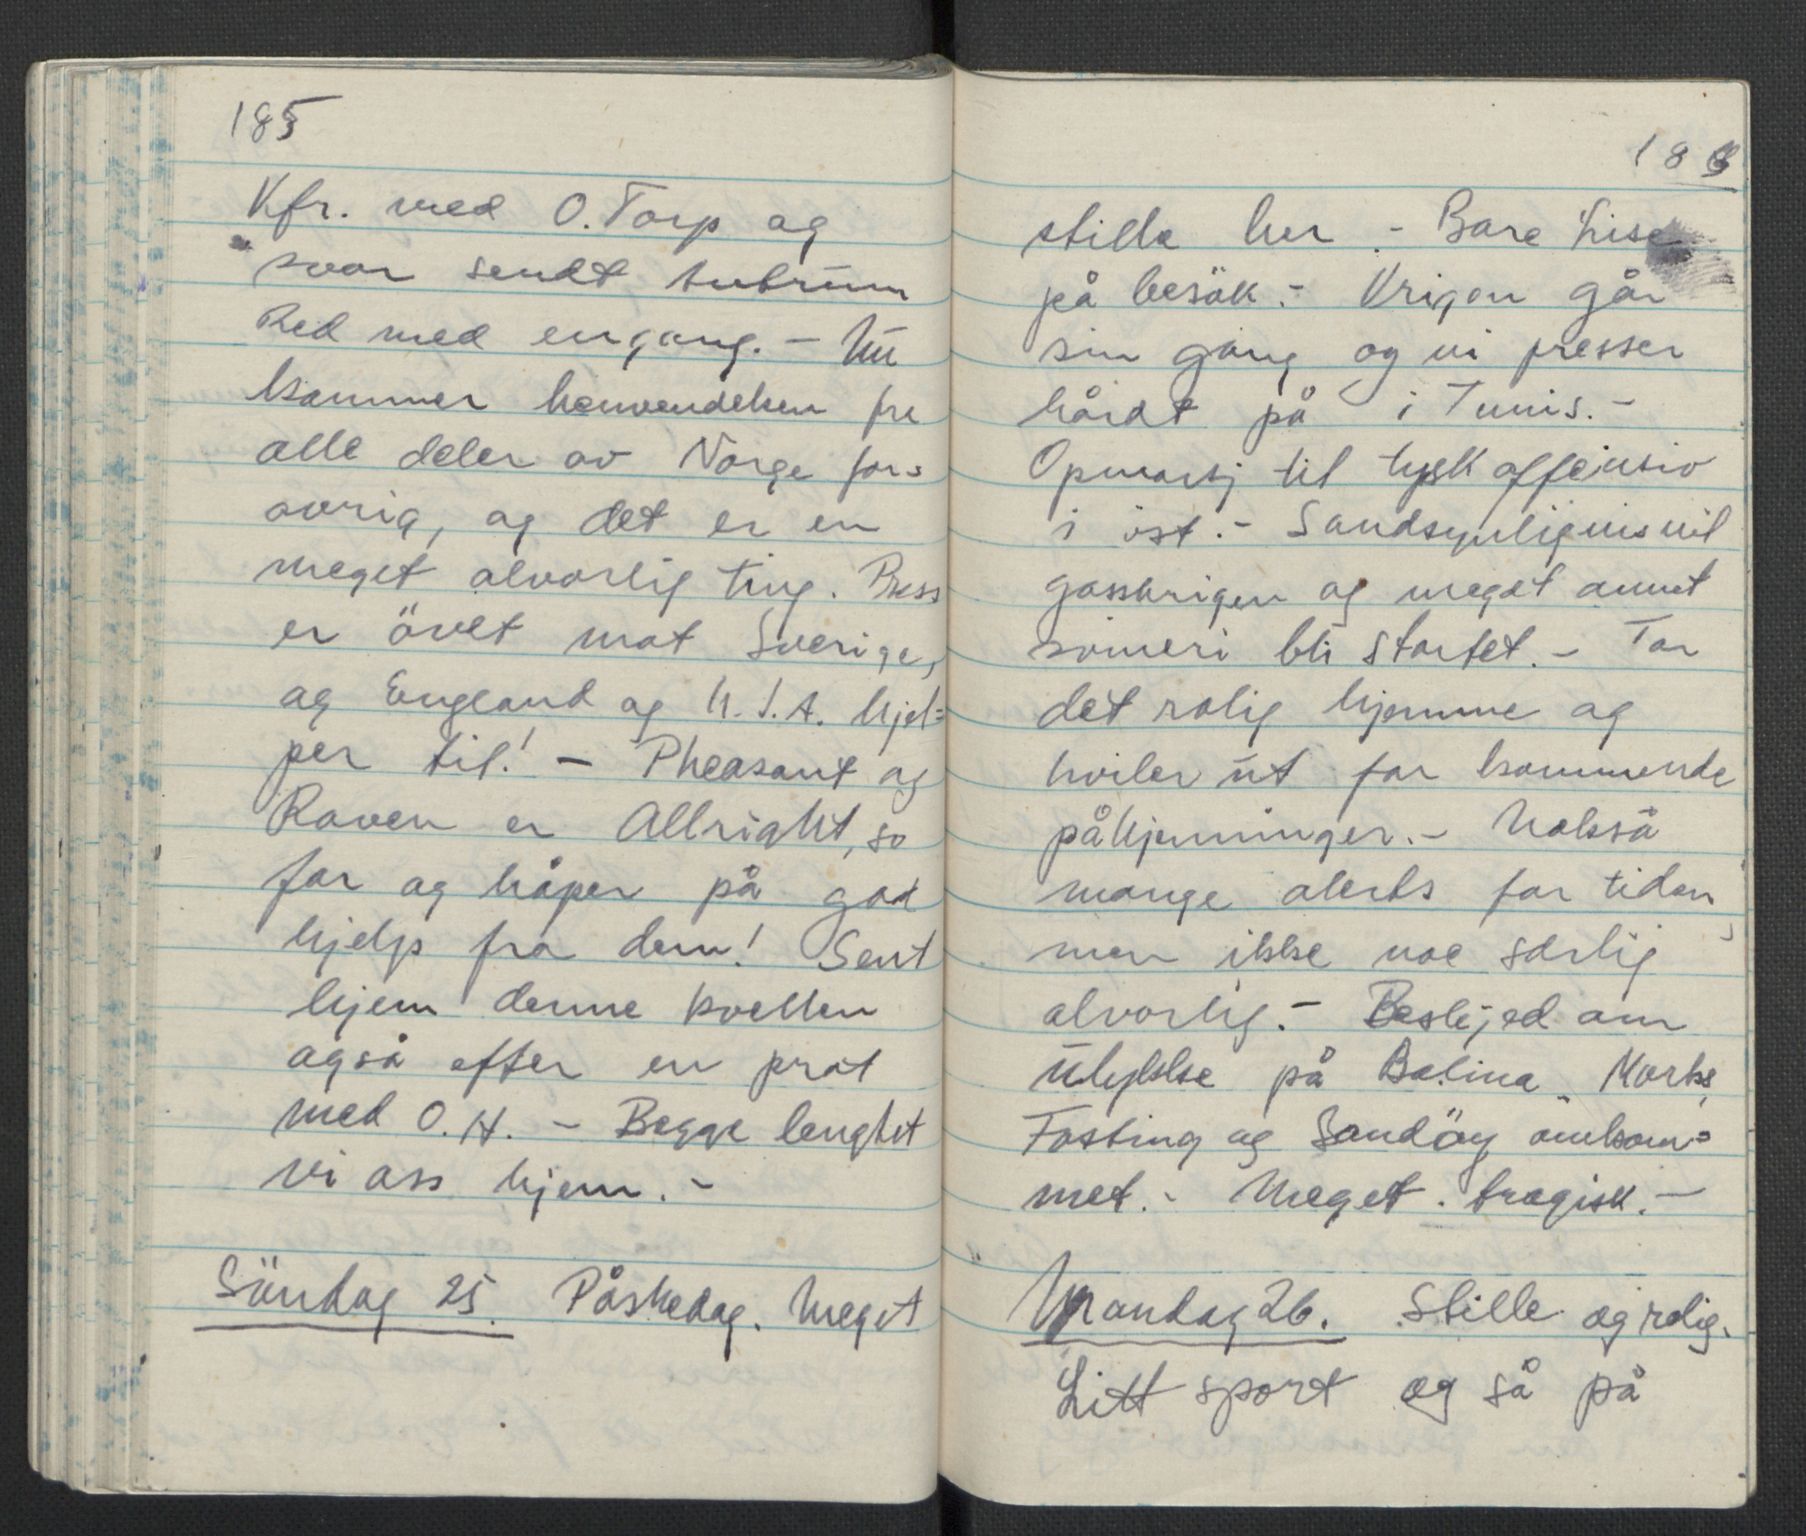 185
Kfr. med O. Torp og
svar sendt
Red med engang. - Nu
kommer henvendelsen fra
alle deler av Norge for-
øvrig, og det er en
meget alvorlig ting. Press
er övet mot Sverige,
og England og U.S.A. hjel-
per til! - Pheasant og
Raven er Allright, so
far og håper på god
hjelp fra dem! Sent
hjem denne kvellen
også efter en prat
med O.H. - Begge lengtet
vi oss hjem. -
Söndag 25. Påskedag. Meget
186
stille her. - Bare Lise
på besök. - Krigen går
sin gang og vi presser
hårdt på i Tunis. -
Opmarsj til tysk offensiv
i öst. - Sandsynligvis vil
gasskrigen og meget annet
svineri bli startet. - Tar
det rolig hjemme og
hviler ut for kommende
påkjenninger. - Nokså
mange alerts for tiden,
men ikke noe særlig
alvorlig. - Beskjed om
ulykke på Bælina. Marks,
Fasting og Sandöy omkom-
met. - Meget tragisk. -
Mandag 26. Stille og rolig.
Litt sport og så på